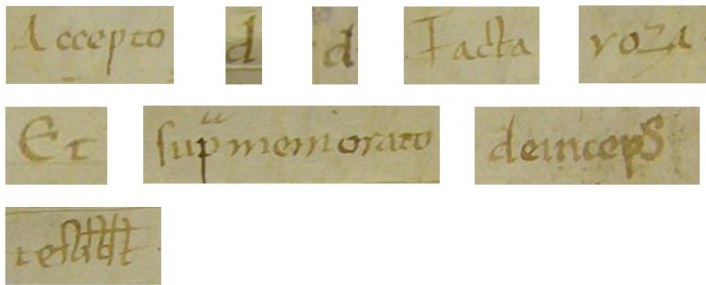 Accepto d d Facta roza
Et sup̅memorato deinceps